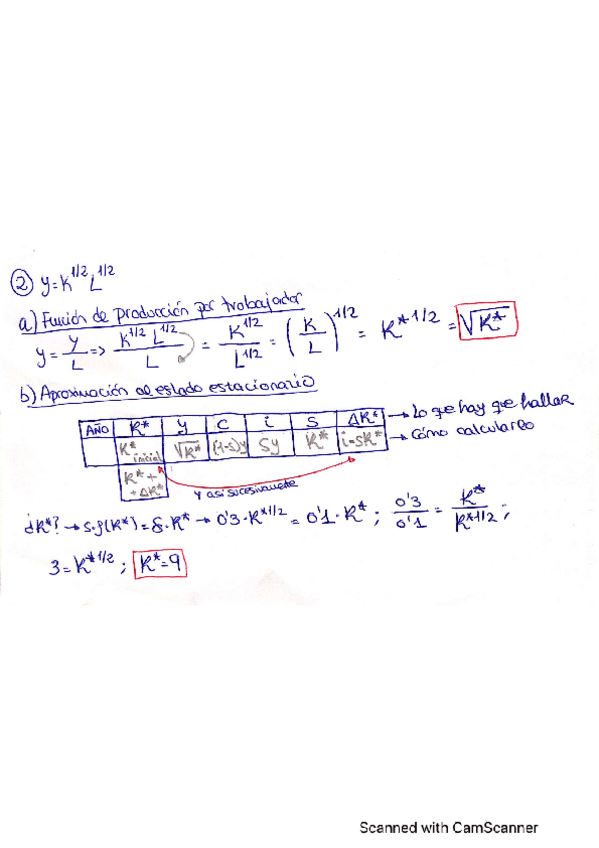 ② y=K^1/2 L^1/2
a) Función de producción por trabajador
y = Y/L => K^1/2 L^1/2 / L = K^1/2 / L^1/2 = (K/L)^1/2 = K*^1/2 = √K*
b) Aproximación al estado estacionario
AÑO K* y c i S ΔK* → Lo que hay que hallar
K* inicial √K* (1-s)y Sy K* i-SK* → Cómo calcularlo
K* + + ΔK* Y así sucesivamente
¿K*? → s·f(K*) = δ·K* → 0'3·K*^1/2 = 0'1·K* ; 0'3/0'1 = K*/K*^1/2 ;
3 = K*^1/2 ; K*=9
Scanned with CamScanner